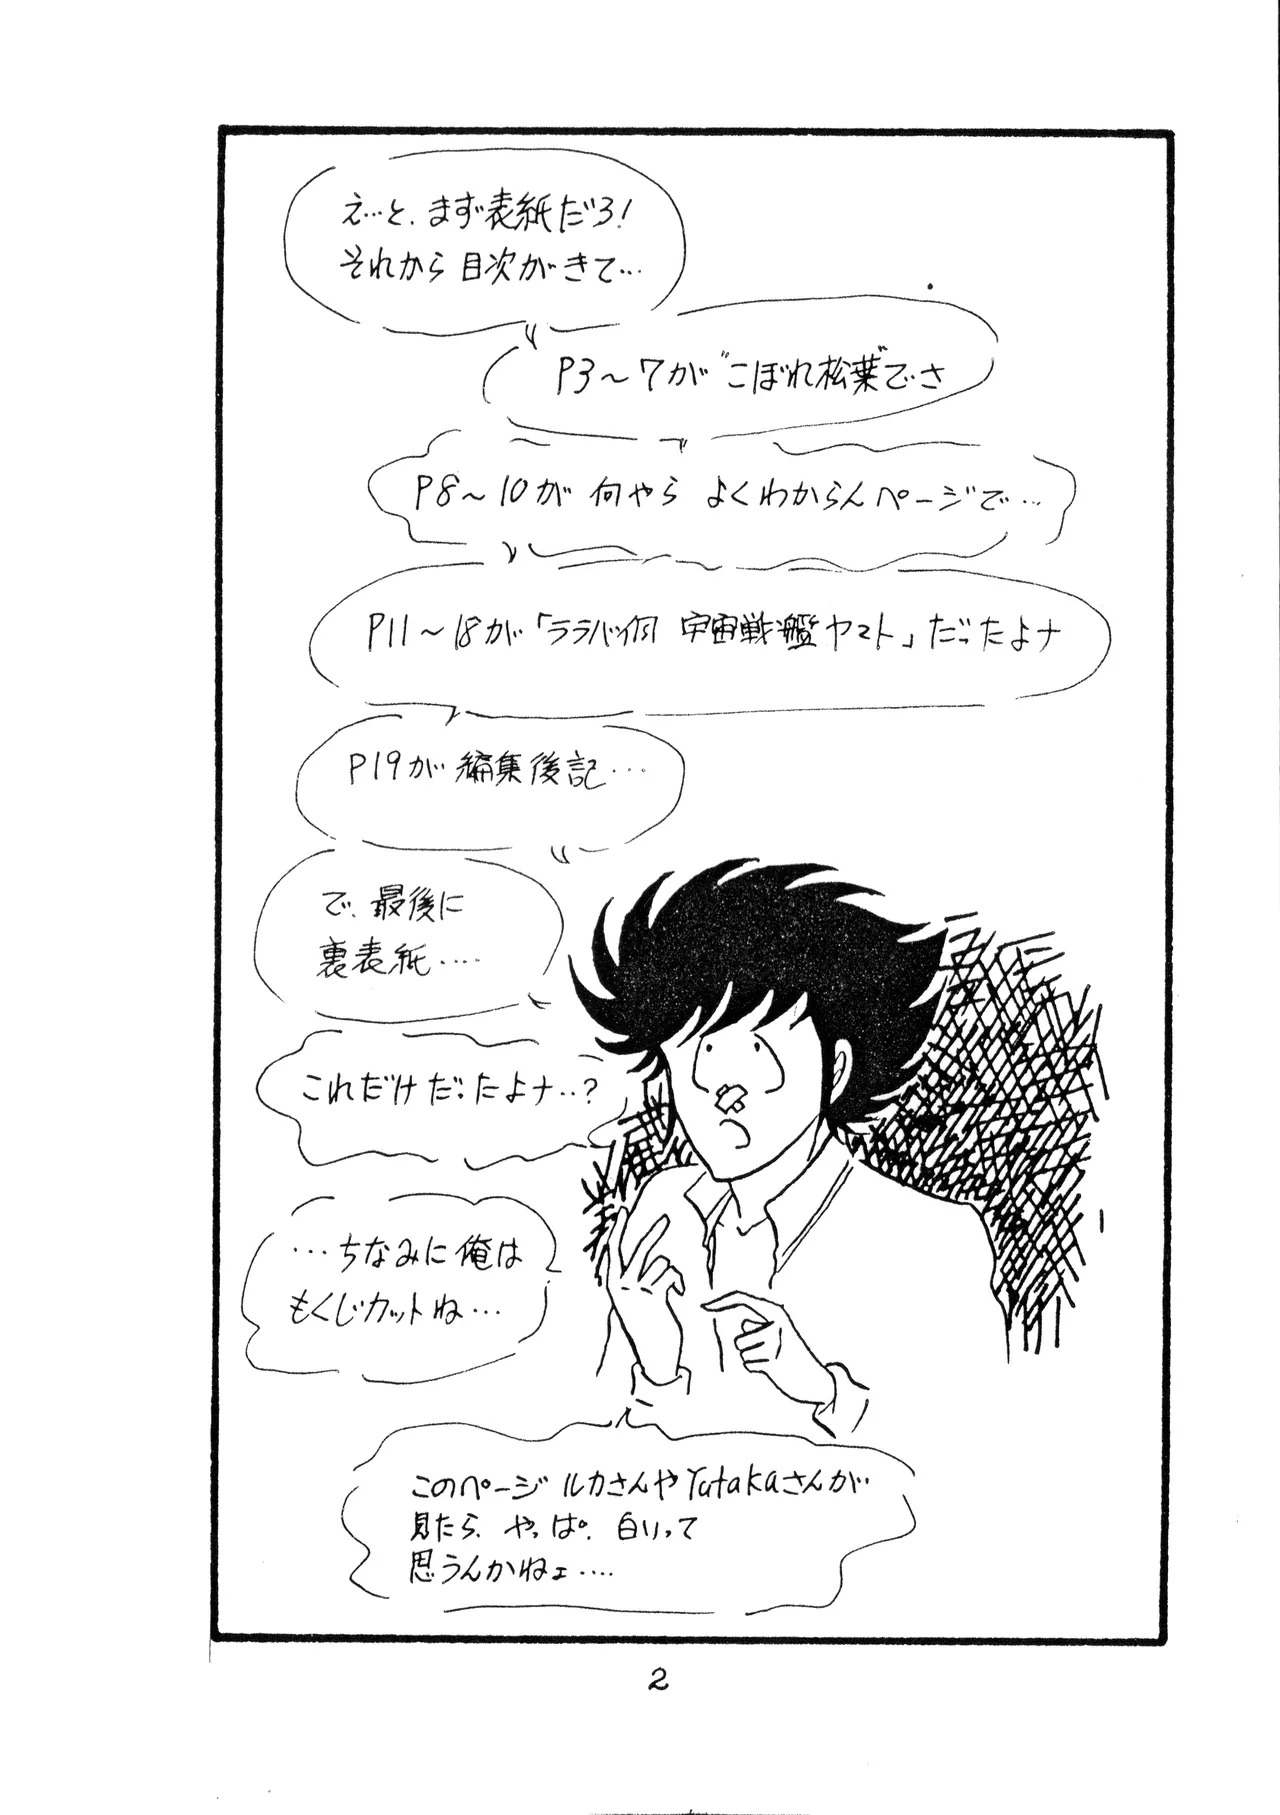 え…と、まず表紙だろ!
それから目次がきて…
P3～7が"こぼれ松葉"でさ
P8～10が何やらよくわからんページで…
P11～18が「ララバイ何 宇宙戦艦ヤマト」だったよナ
P19が編集後記…
で、最後に
裏表紙……
これだけだったよナ‥?
…ちなみに俺は
もくじカットね…
このページルカさんやYutakaさんが
見たら、やっぱ。白いって
思うんかねェ….